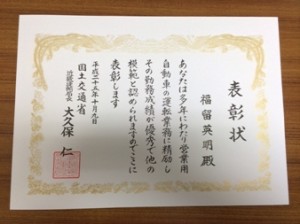 表彰状
福留英明殿
あなたは多年にわたり営業用
自動車の運転業務に精励し
その勤務成績が優秀で他の
模範と認められますのでここに
表彰します
平成二十五年十月九日
国土交通省
大久保 仁